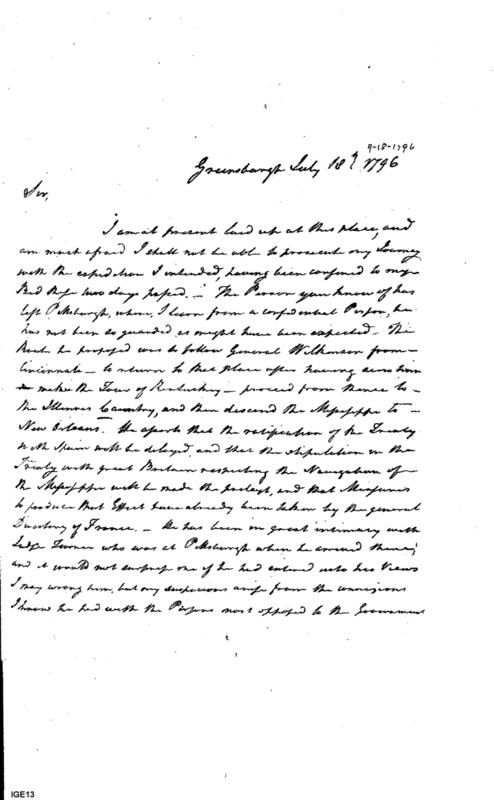 7-18-1796
Greensburgh July 18th 1796
Sir,
I am at present laid up at this place, and
am much afraid I shall not be able to prosecute my Journey
with the expedition I intended, having been confined to my
Bed these two days passed. — The Person you know of has
left Pittsburgh, where, I learn from a confidential Person, he
has not been so guarded as might have been expected. The
Route he proposed was to follow General Wilkinson from
Cincinnati — to return to that place after having seen him
make the Tour of Kentuckey — proceed from thence to
the Illinois Country, and then descend the Missisippi to —
New Orleans. He asserts that the ratification of the Treaty
with Spain will be delayed, and that the stipulation in the
Treaty with great Britain respecting the Navigation of
the Missisippi will be made the pretext, and that Measures
to produce that Effect have already been taken by the general
Directory of France. — He has been in great intimacy with
Judge Turner who was at Pittsburgh when he arrived there;
and it would not surprise one if he had entered into his Views
I may wrong him, but my suspicions arise from the connexions
I know he had with the Persons most opposed to the Government
IGE13